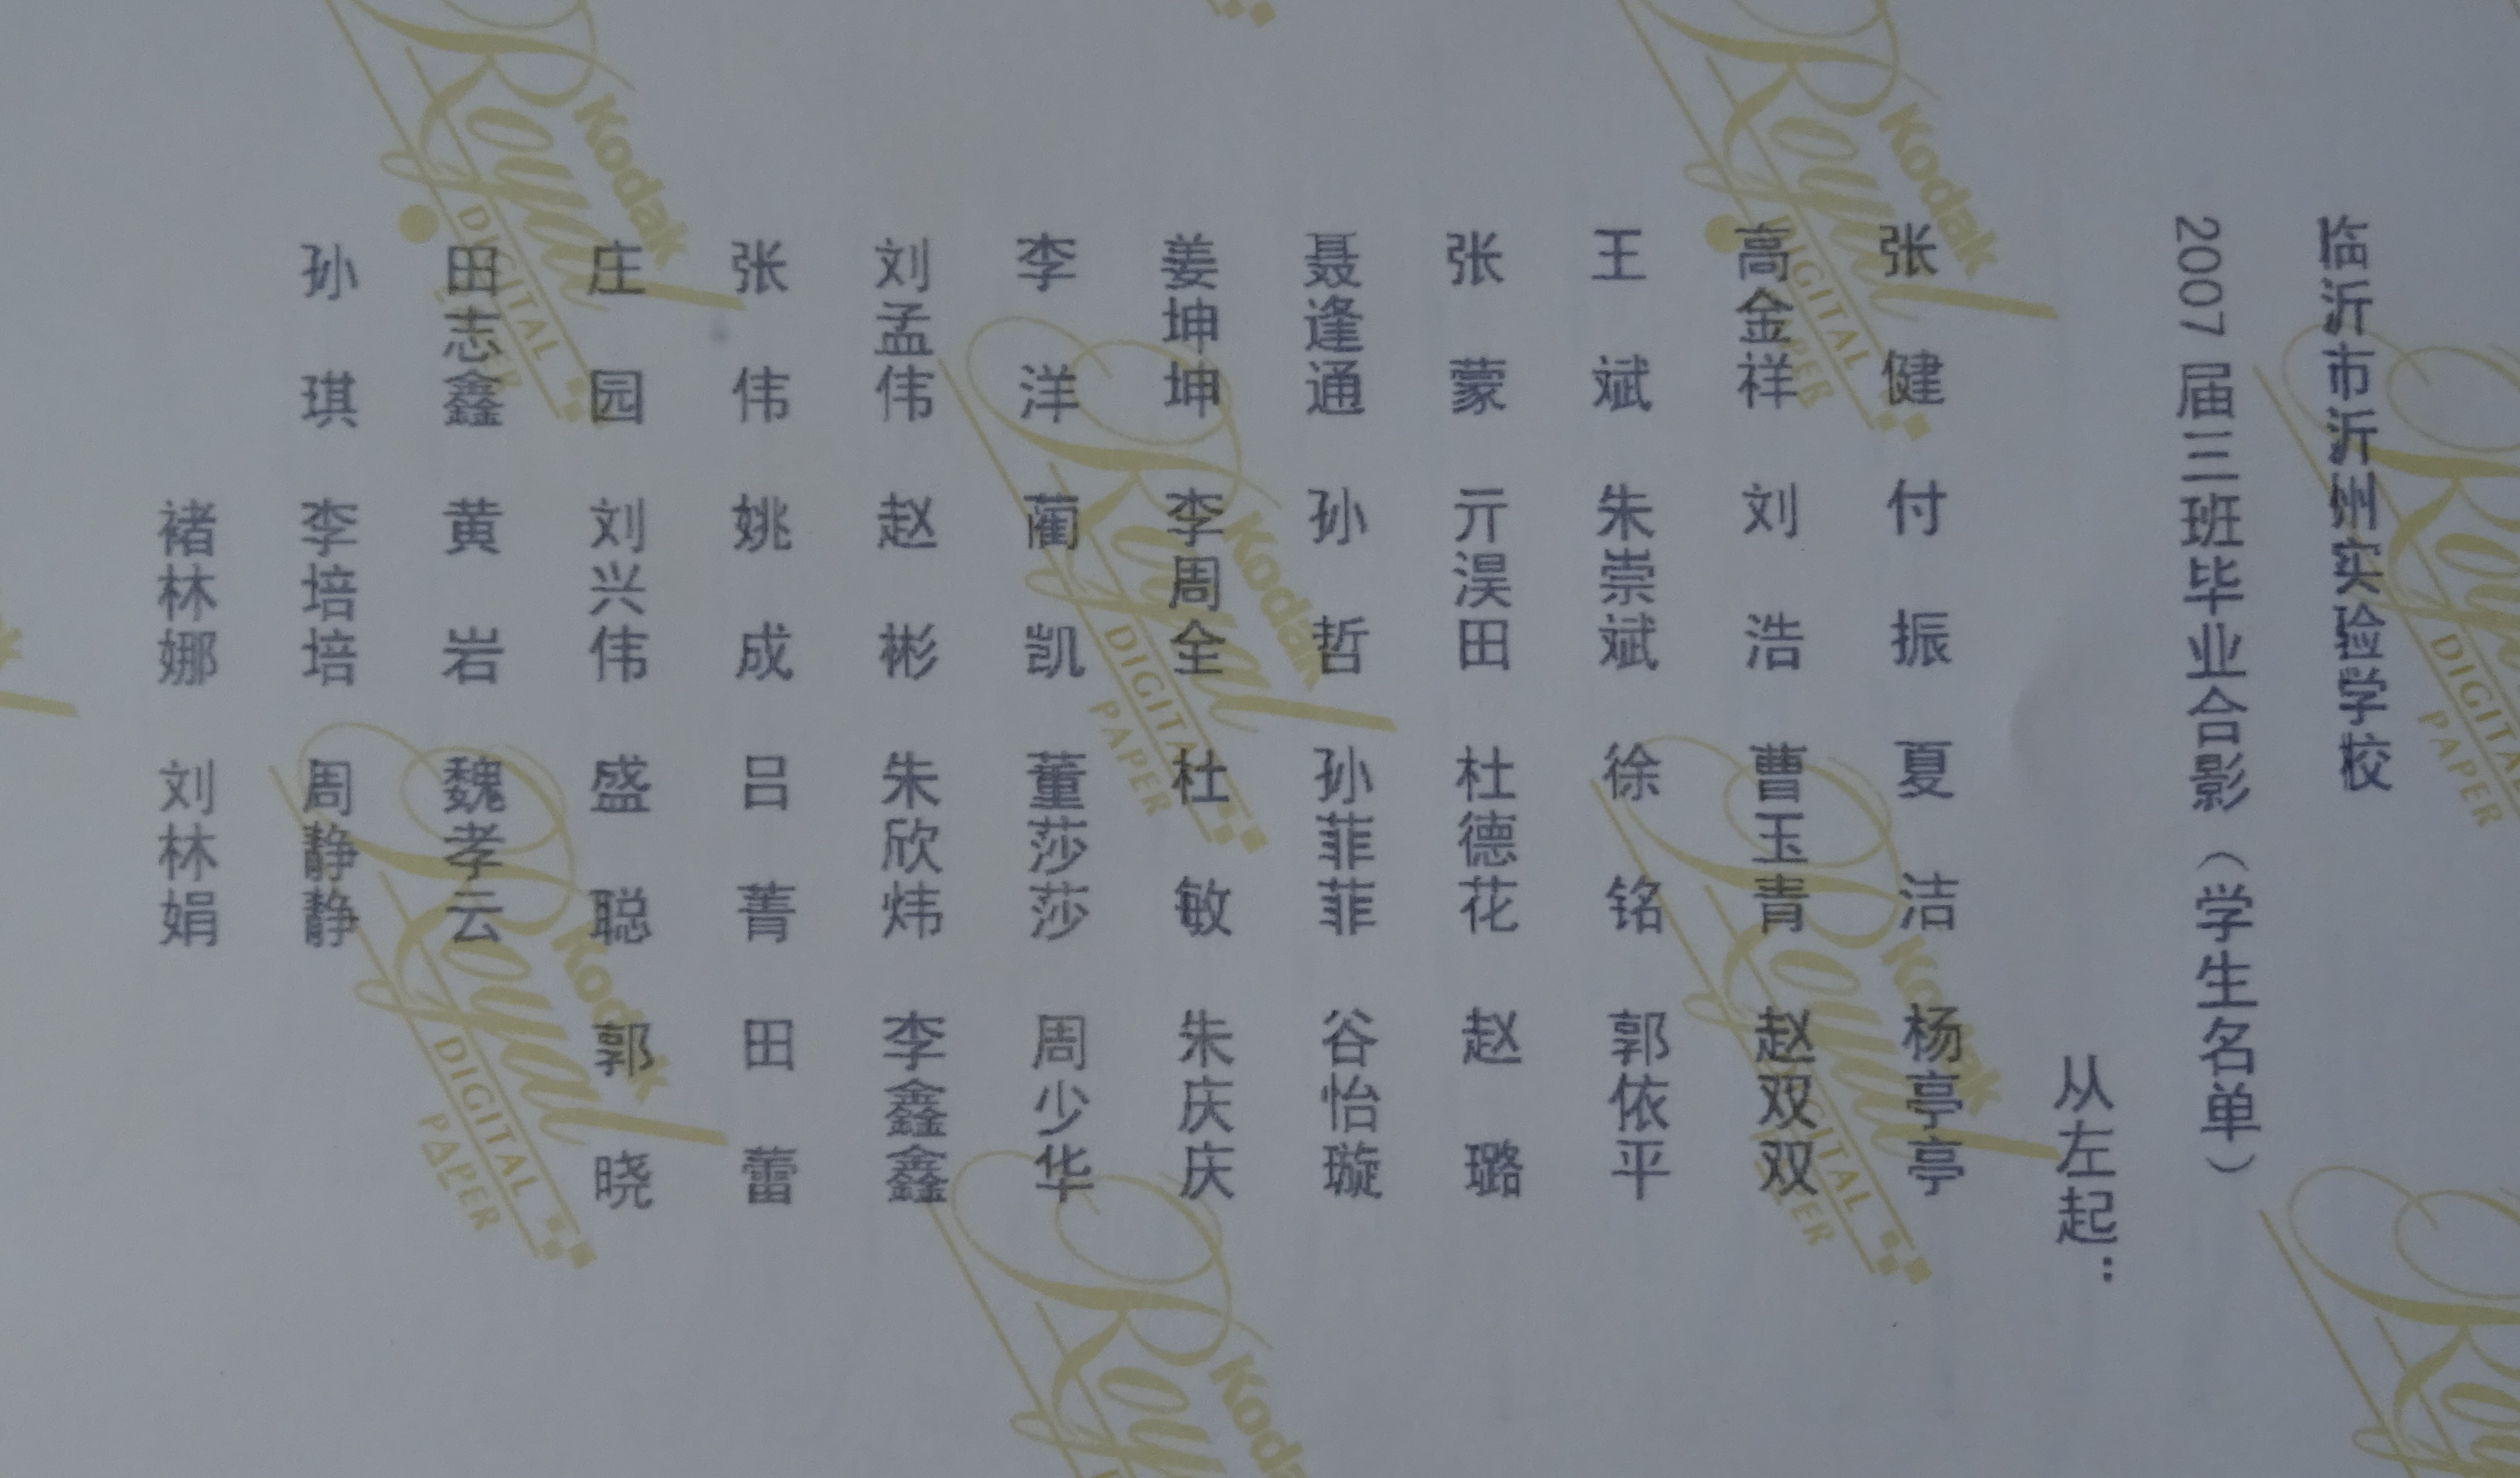 临沂市沂州实验学校
2007届三班毕业合影（学生名单）
从左起：
张健 付振 夏洁 杨亭亭
高金祥 刘浩 曹玉青 赵双双
王斌 朱崇斌 徐铭 郭依平
张蒙 亓淏田 杜德花 赵璐
聂逢通 孙哲 孙菲菲 谷怡璇
姜坤坤 李周全 杜敏 朱庆庆
李洋 蔺凯 董莎莎 周少华
刘孟伟 赵彬 朱欣炜 李鑫鑫
张伟 姚成 吕菁 田蕾
庄园 刘兴伟 盛聪 郭晓
田志鑫 黄岩 魏孝云
孙琪 李培培 周静静
褚林娜 刘林娟
Kodak
Royal
DIGITAL
PAPER